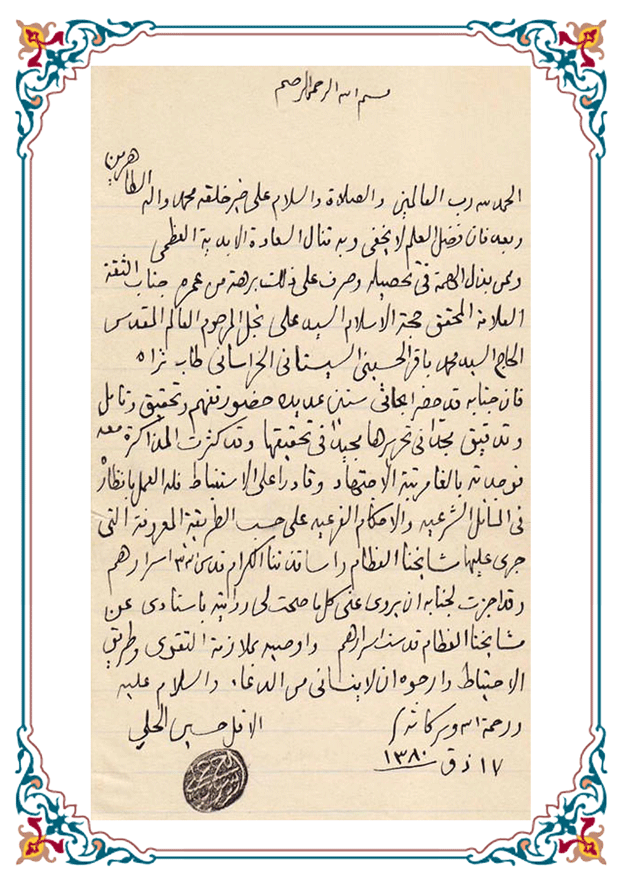 بسم الله الرحمن الرحيم
الحمد لله رب العالمين والصلاة والسلام على خير خلقه محمد واله الطاهرين
وبعد فان فضل العلم لا يخفى وبه تنال السعادة الابدية العظمى
وممن بذل الهمة في تحصيله وصرف على ذلك برهة من عمره جناب الثقة
العلامة المحقق حجة الاسلام السيد علي نجل المرحوم العالم المقدس
الحاج السيد محمد باقر الحسيني السيستاني الخراساني طاب ثراه
فان جنابه قد حضر ابحاثي سنين عديدة حضور تفهم وتحقيق وتأمل
وتدقيق مجدا في تحريرها مجيدا في تحقيقها وقد كثرت المذاكرة معه
فوجدته بالغا مرتبة الاجتهاد وقادرا على الاستنباط فله العمل بانظاره
في المسائل الشرعيه والاحكام الفرعيه على حسب الطريقة المعروفة التي
جرى عليها مشايخنا العظام واساتذتنا الكرام قدس الله اسرارهم
وقد اجزت لجنابه ان يروي عني كل ما صحت لي روايته باسنادي عن
مشايخنا العظام قدست اسرارهم واوصيه بملازمة التقوى وطريق
الاحتياط وارجوه ان لا ينساني من الدعاء والسلام عليه
ورحمة الله وبركاته
الاقل حسين الحلي
١٧ ذ ق ١٣٨٠